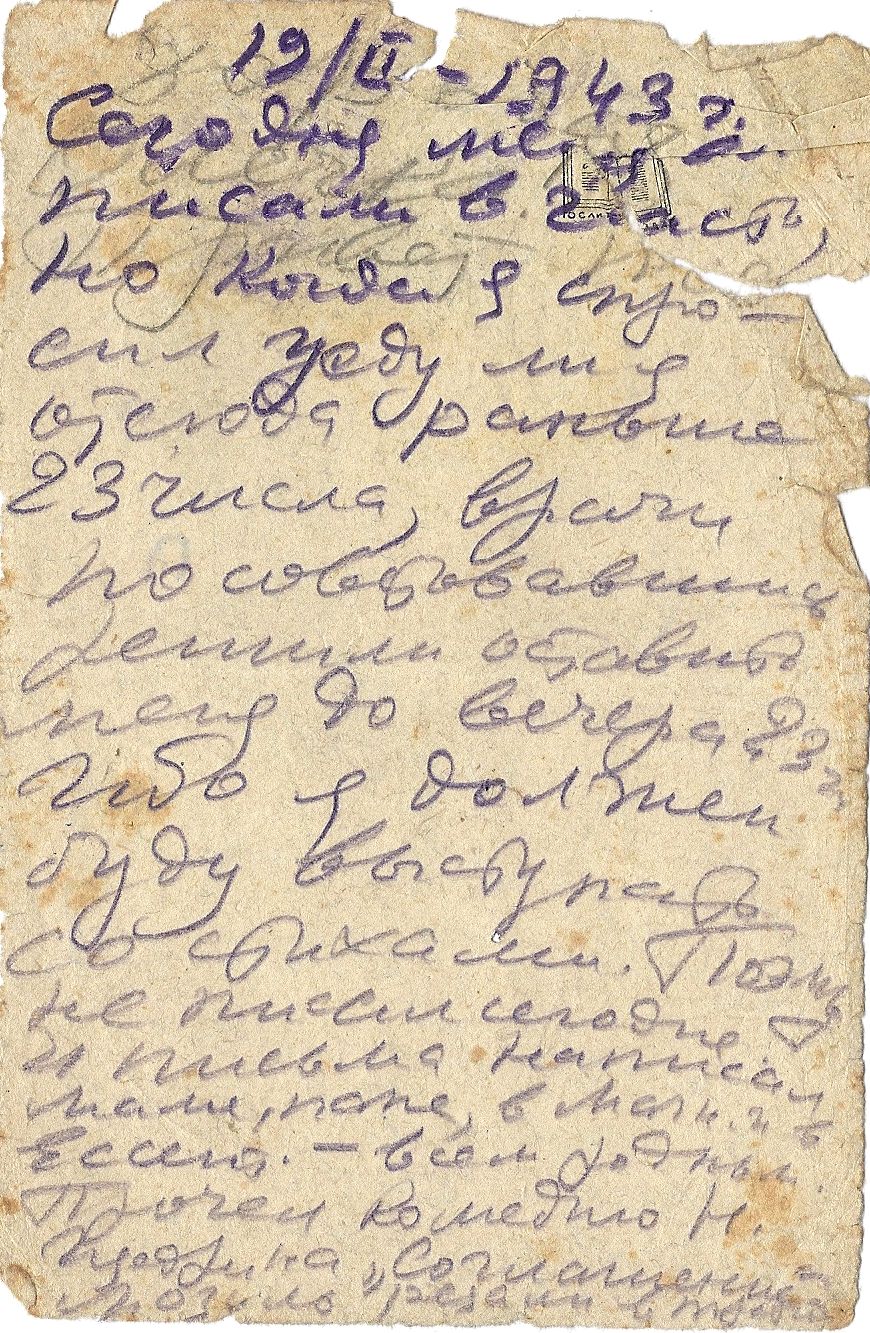 19/II - 1943 г.
Сегодня меня вы
писали в часть,
но когда я спро-
сил уеду ли я
отсюда раньше
23 числа, врачи
посоветовавшись
решили оставить
меня до вечера 23
ибо я должен
буду выступать
со стихами. Поэму
не писал сегодня
4 письма написал
маме, папе, в Магн. и в
Ессент. - всем родным.
Прочел комедию Н.
"Соглашение"